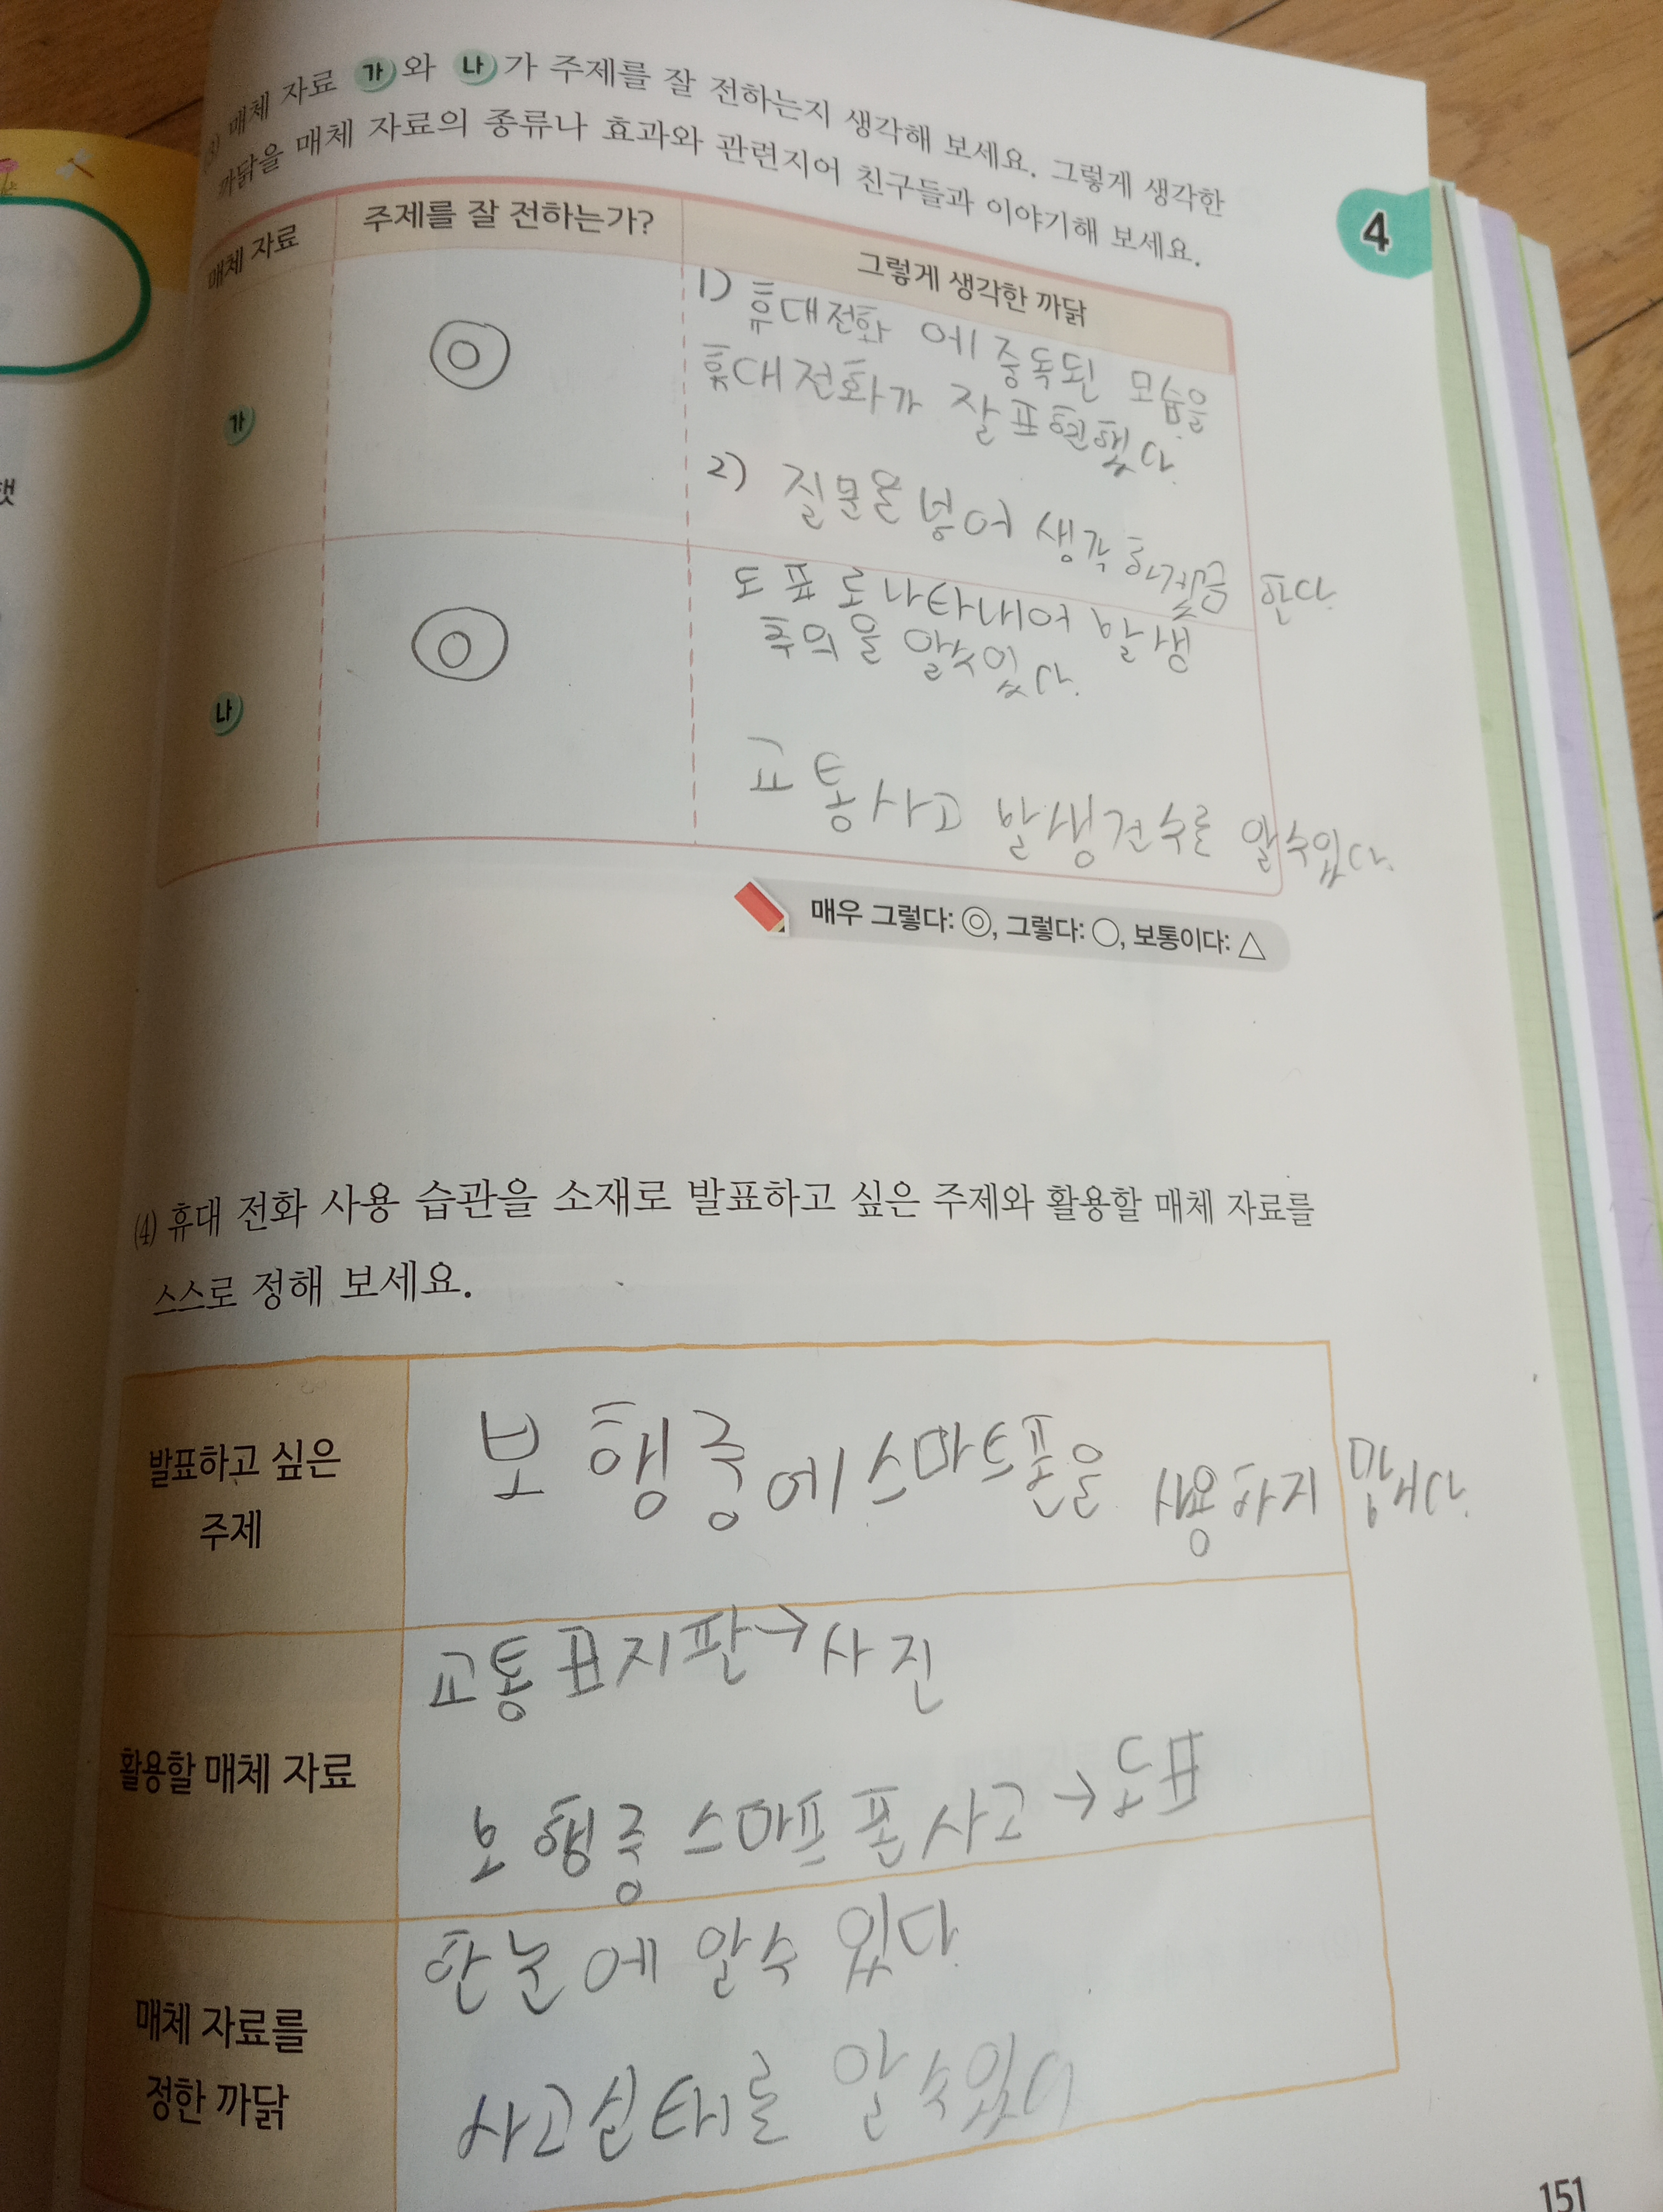 (3) 매체 자료 가 와 나 가 주제를 잘 전하는지 생각해 보세요. 그렇게 생각한
까닭을 매체 자료의 종류나 효과와 관련지어 친구들과 이야기해 보세요.
4
매체 자료 주제를 잘 전하는가? 그렇게 생각한 까닭
가
◎
1) 휴대전화 에 중독된 모습을
휴대전화가 잘 표현했다.
2) 질문을 넣어 생각 하게끔 한다.
나
◎
도표로 나타내어 발생
추의을 알수있다.
교통사고 발생건수를 알수있다.
매우 그렇다: ◎, 그렇다: ○, 보통이다: △
(4) 휴대 전화 사용 습관을 소재로 발표하고 싶은 주제와 활용할 매체 자료를
스스로 정해 보세요.
발표하고 싶은
주제
보행중에 스마트폰을 사용하지 맙시다.
활용할 매체 자료
교통표지판→사진
보행중 스마프폰사고→도표
매체 자료를
정한 까닭
한눈에 알수 있다.
사고실태를 알수있다
151
햇